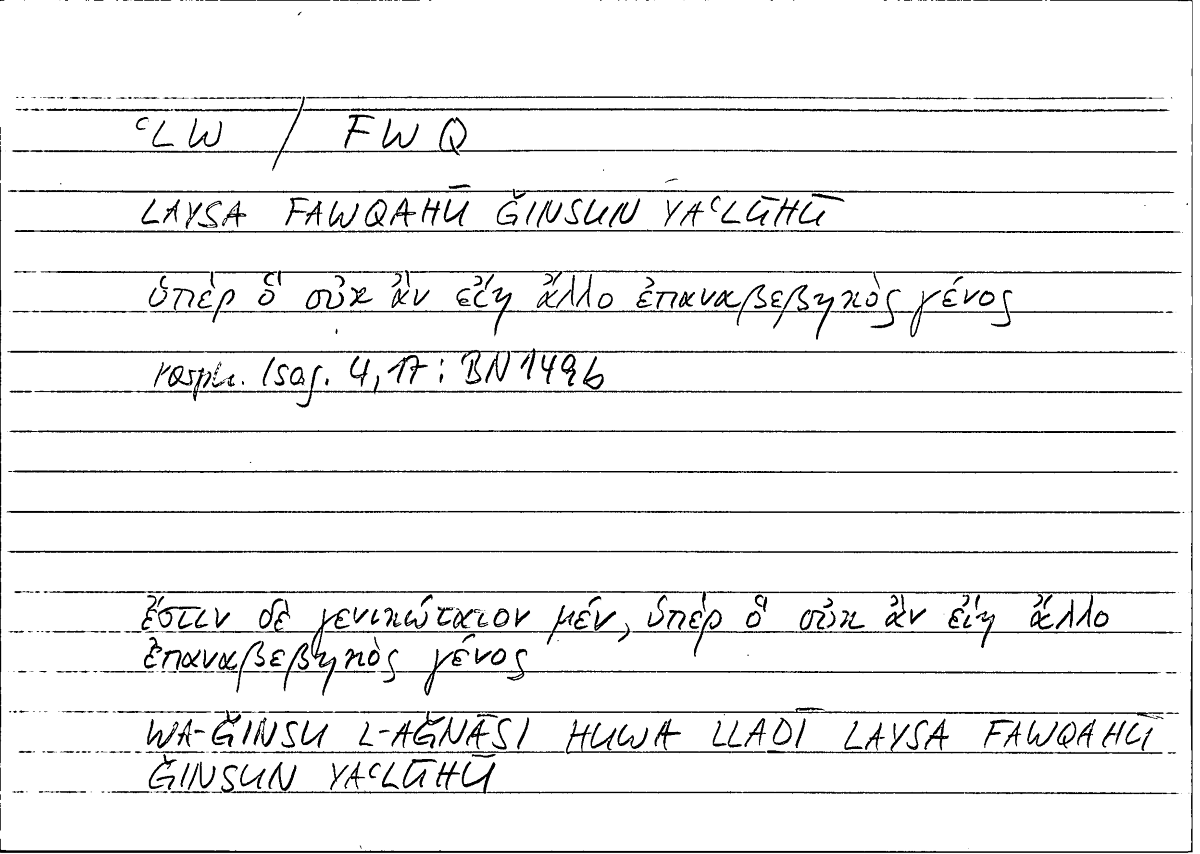 ᶜLW / FWQ
LAYSA FAWQAHŪ ǦINSUN YAᶜLŪHŪ
ὑπὲρ ὃ οὐκ ἂν εἴη ἄλλο ἐπαναβεβηκὸς γένος
Porph. Isag. 4,17: BN 149b
ἔστιν δὲ γενικώτατον μέν, ὑπὲρ ὃ οὐκ ἂν εἴη ἄλλο
ἐπαναβεβηκὸς γένος
WA-ǦINSU L-AǦNĀSI HUWA LLAḎĪ LAYSA FAWQAHŪ
ǦINSUN YAᶜLŪHŪ